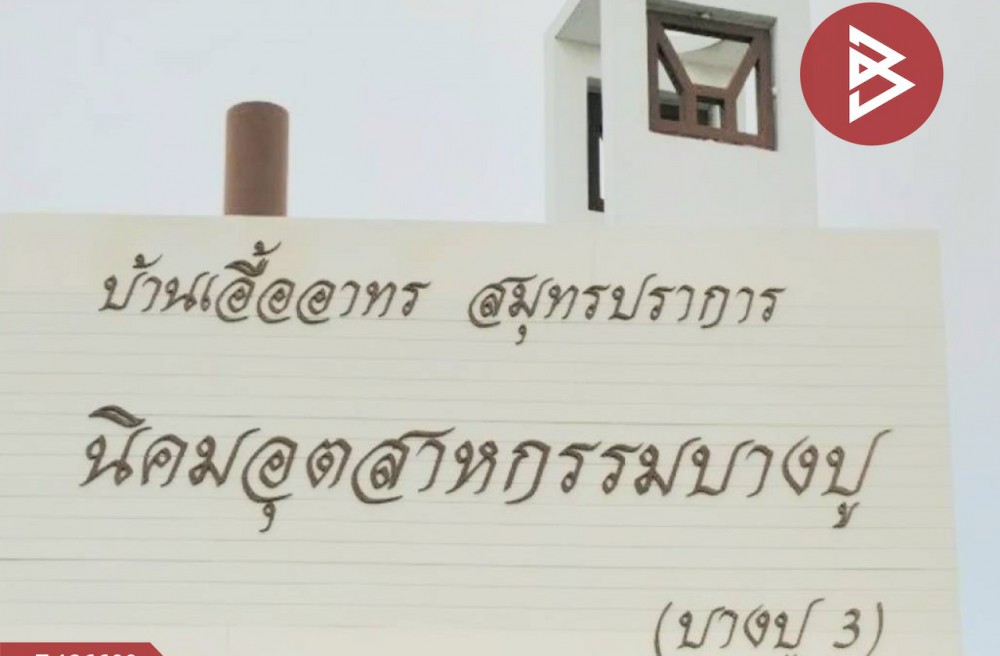 บ้านเอื้ออาทร สมุทรปราการ
นิคมอุตสาหกรรมบางปู
(บางปู 3)